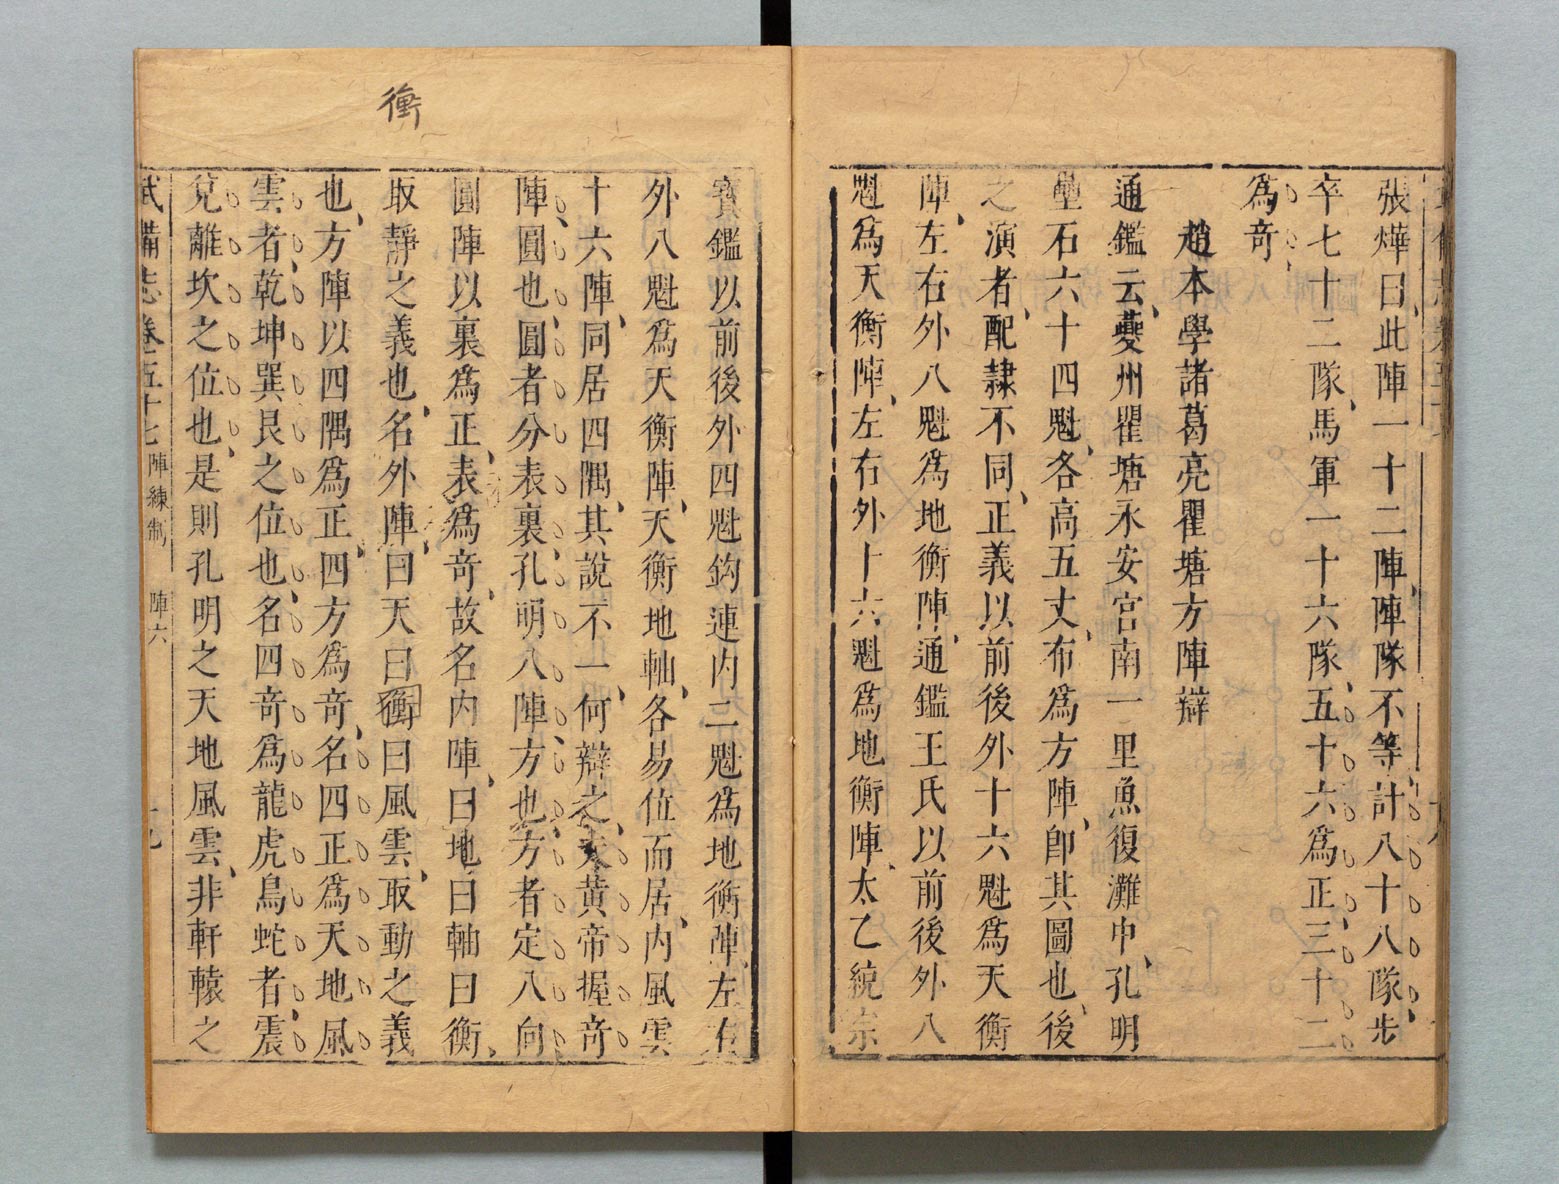 張燁曰此陣一十二陣陣隊不等計八十八隊步
卒七十二隊馬軍一十六隊五十六爲正三十二
爲奇
趙本學諸葛亮瞿塘方陣辯
通鑑云夔州瞿塘永安宮南一里魚復灘中孔明
壘石六十四魁各高五丈布爲方陣卽其圖也後
之演者配隸不同正義以前後外十六魁爲天衡
陣左右外八魁爲地衡陣通鑑王氏以前後外八
魁爲天衡陣左右外十六魁爲地衡陣太乙統宗
寶鑑以前後外四魁鈎連内二魁爲地衡陣左右
外八魁爲天衡陣天衡地軸各易位而居内風雲
十六陣同居四隅其說不一何辯之夫黃帝握奇
陣圓也圓者分表裏孔明八陣方也方者定八向
圓陣以裏爲正表爲奇故名内陣曰地曰軸曰衡
取靜之義也名外陣曰天曰衝曰風雲取動之義
也方陣以四隅爲正四方爲奇名四正爲天地風
雲者乾坤巽艮之位也名四奇爲龍虎鳥蛇者震
兌離坎之位也是則孔明之天地風雲非軒轅之
武備志卷五十七 陣練制 陣六 十九
衝